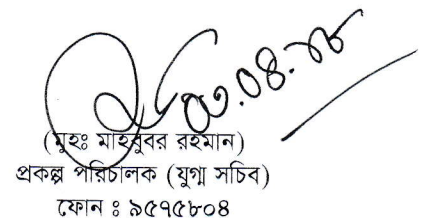 ০৩.০৪.১৮
(মুহঃ মাহবুবর রহমান)
প্রকল্প পরিচালক (যুগ্ম সচিব)
ফোন ঃ ৯৫৭৫৮০৪